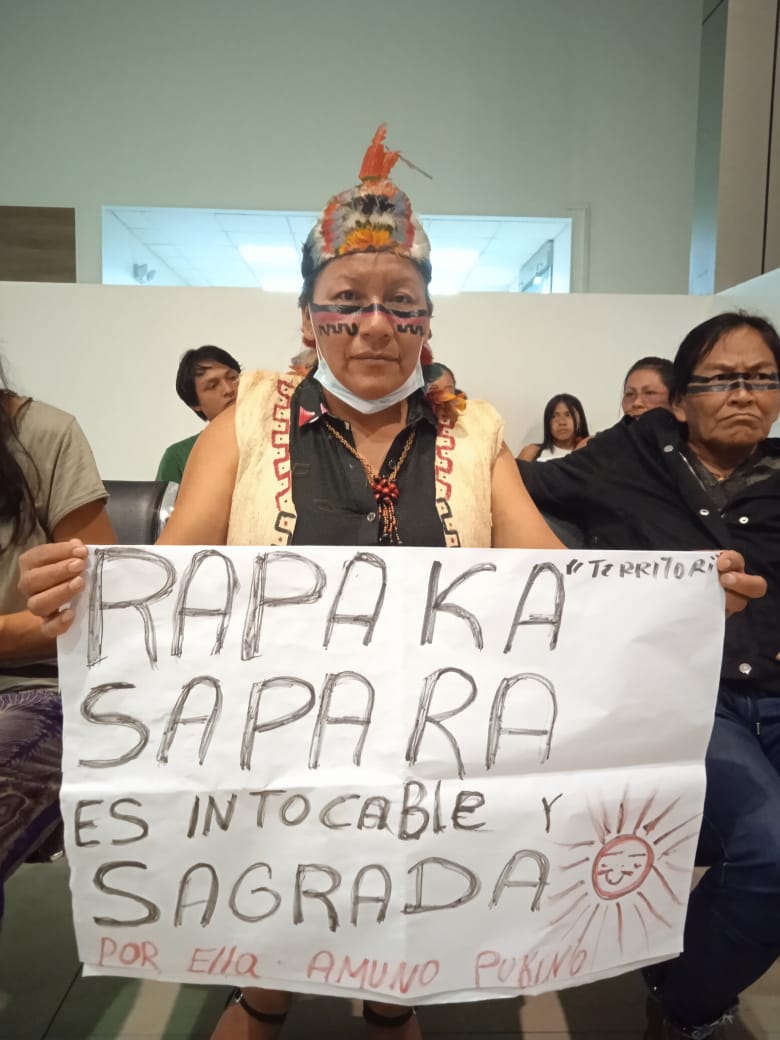 RAPAKA "TERRITORI"
SAPARA
ES INTOCABLE Y
SAGRADA
POR Ella AMUNO PUKINO